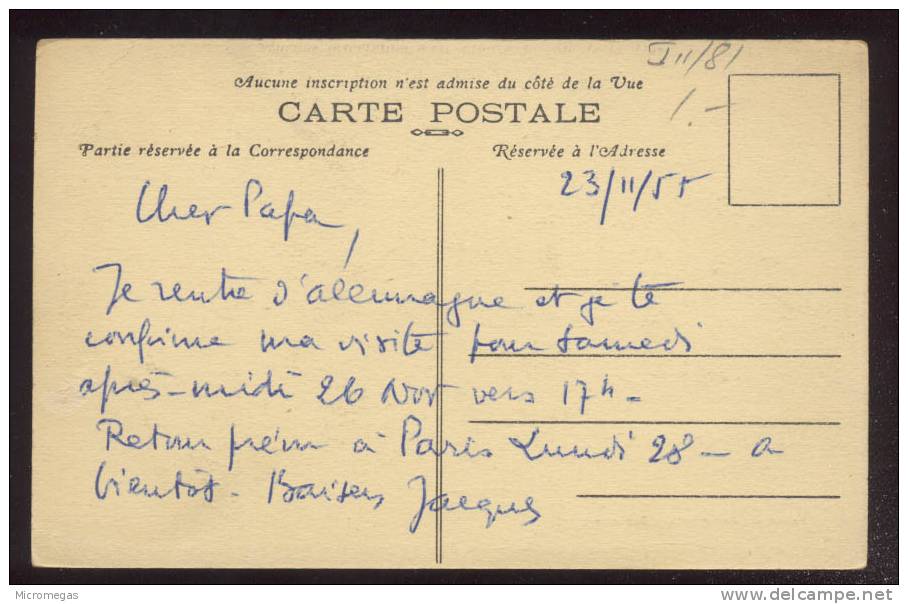 III/81
1.-
Aucune inscription n'est admise du côté de la Vue
CARTE POSTALE
Partie réservée à la Correspondance
Réservée à l'Adresse
23/11/55
Cher Papa,
Je rentre d'allemagne et je te
confirme ma visite pour samedi
après-midi 26 Nov vers 17h-
Retour prévu à Paris Lundi 28 - a
bientôt - Baisers Jacques
Micromegas
delcampe.net